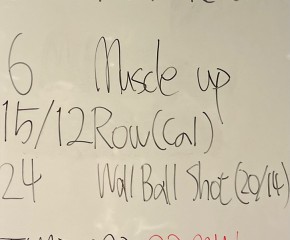 6 Muscle up
15/12 Row(Cal)
24 Wall Ball Shot (20/14)